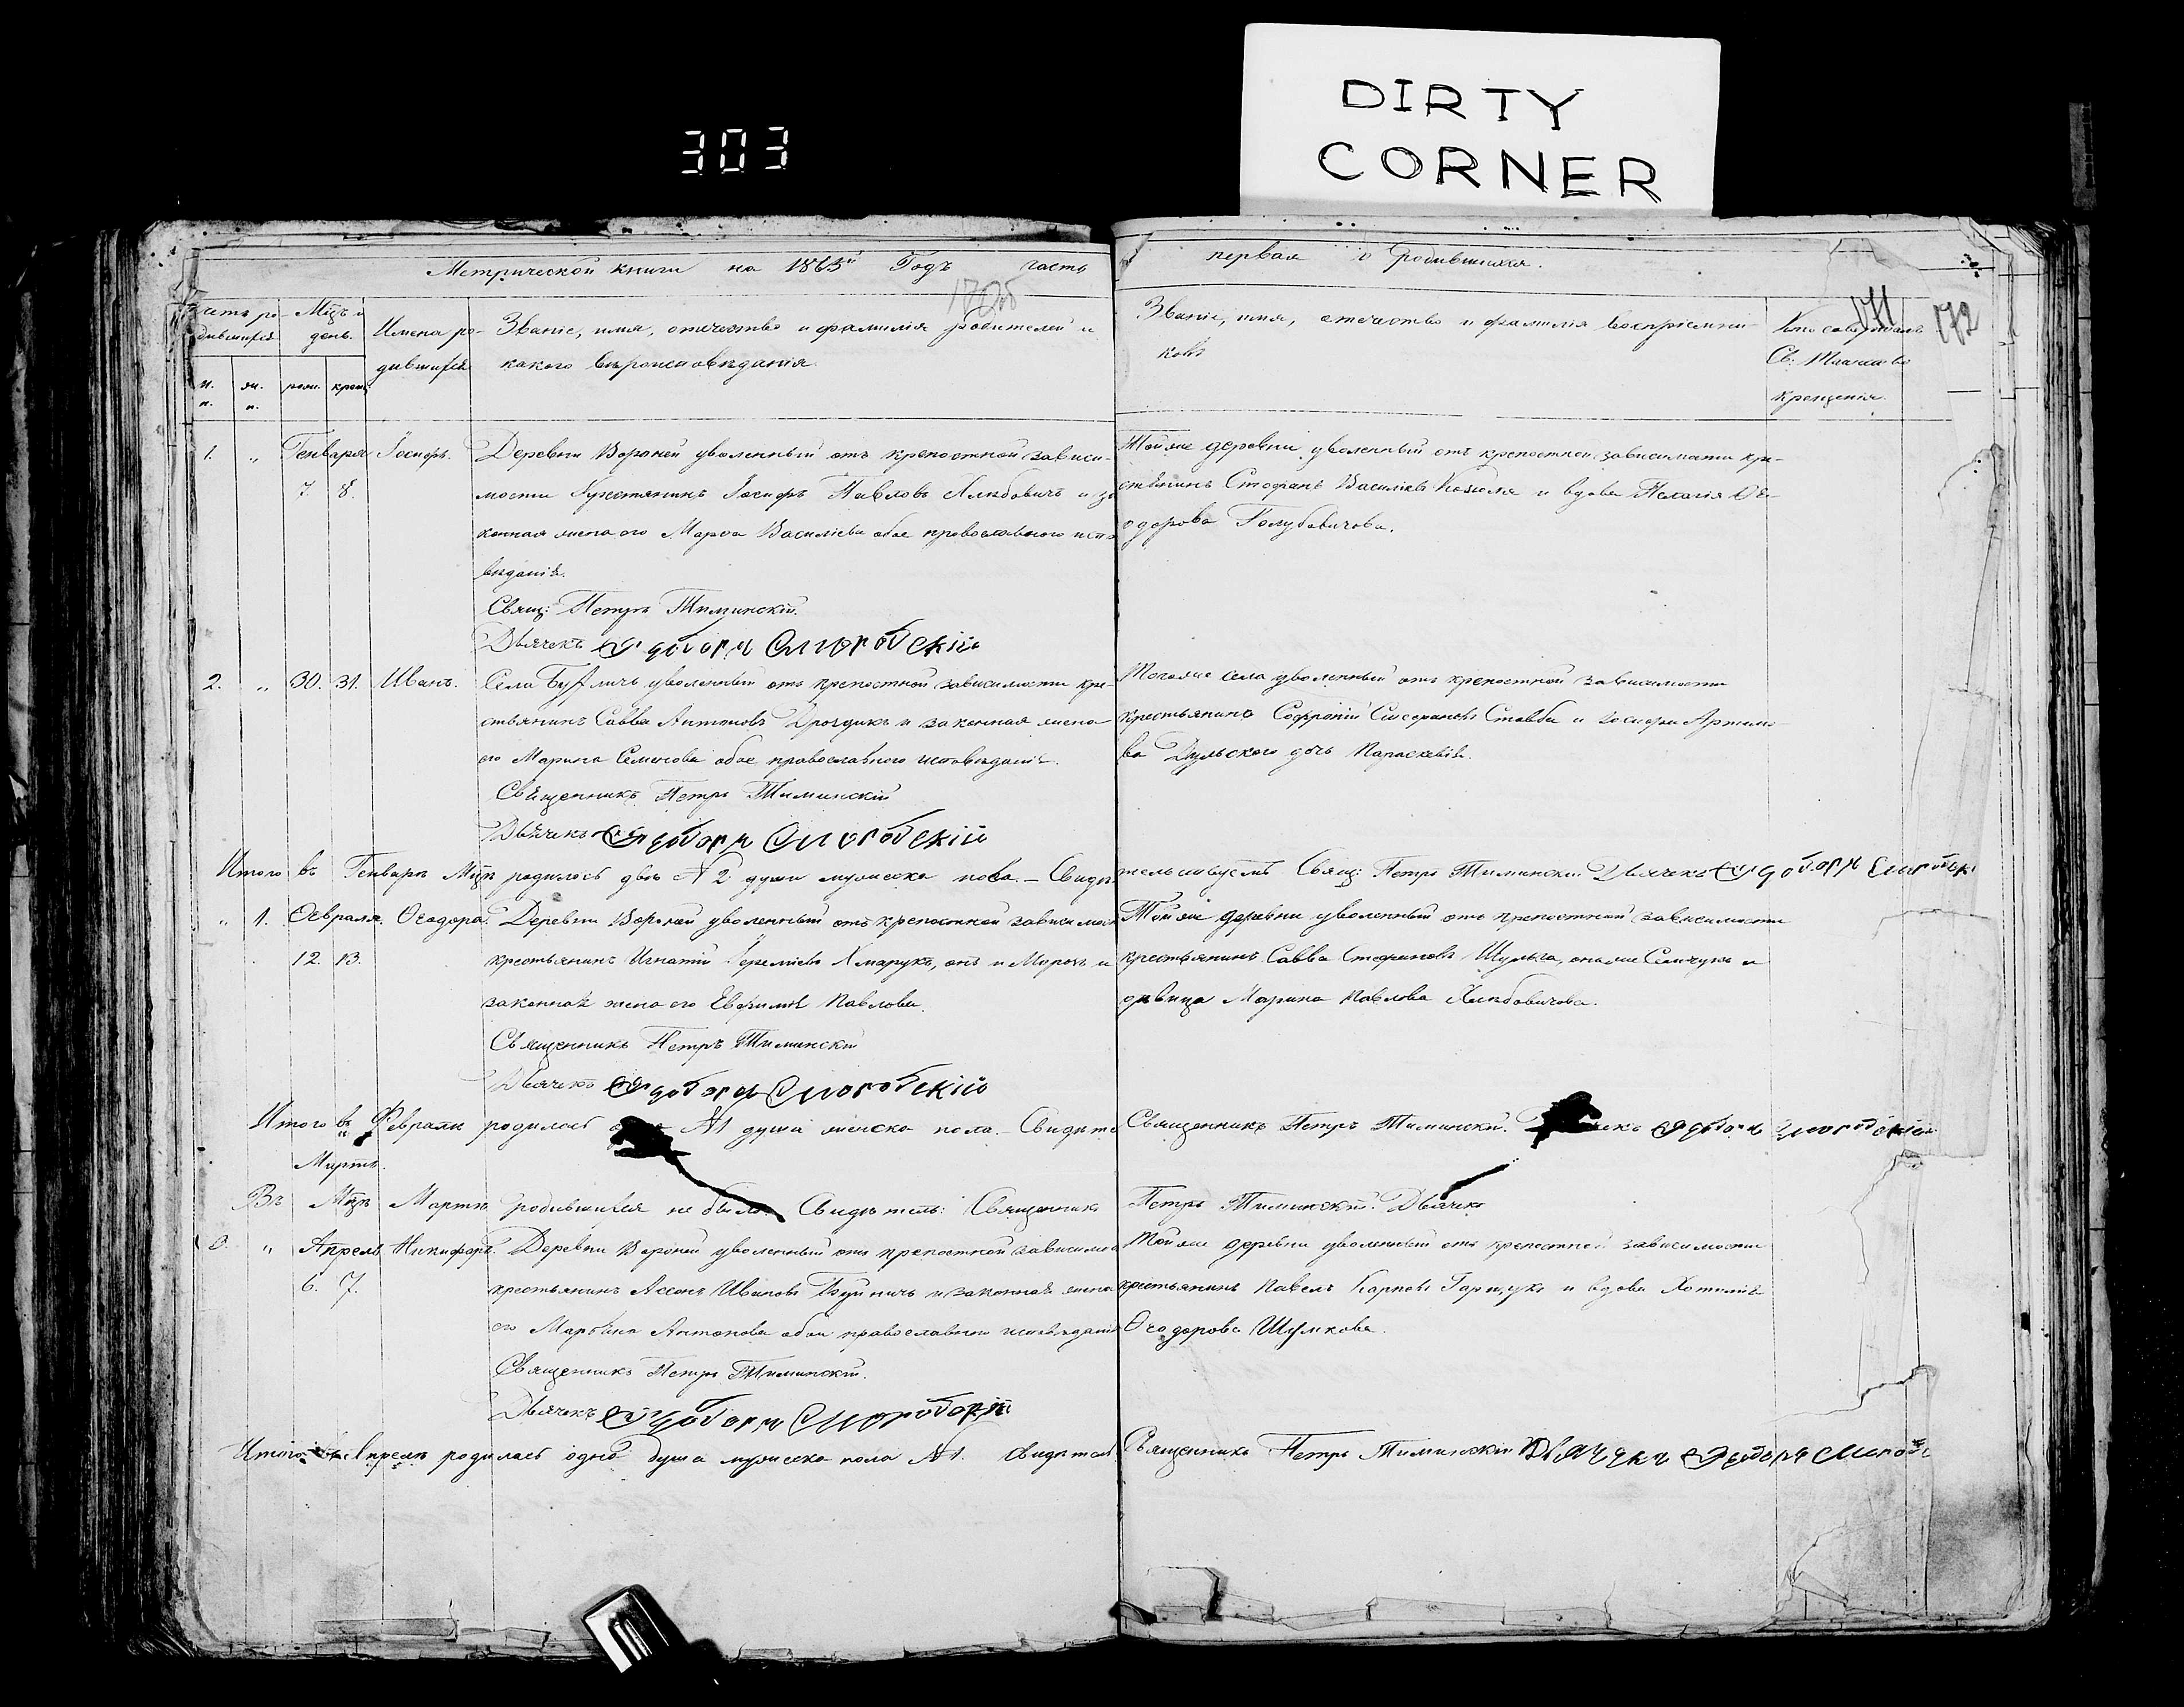 303
DIRTY
CORNER
Метрической книги на 1863й Годъ часть
первая о родившихся.
171
172
Счетъ ро-
дившихся
м. п.
ж. п.
Мцъ и
день.
рож.
крещ.
Имена ро-
дившихся
Званіе, имя, отечество и фамилія родителей и
какого вѣроисповѣданія.
Званіе, имя, отечество и фамилія воспріемни-
ковъ
Кто совершалъ
Св: Таинство
крещенія.
1. „ Генваря Іосифъ.
7. 8.
Деревни Вороней уволенный отъ крепостной зависи-
мости Крестянинъ Іосифъ Павловъ Хлѣбовичъ и за
конная жена его Марѳа Василіева обое православного испо
вѣданія.
Свящ: Петръ Тиминскій.
Дьячекъ
Тойже деревни уволенный отъ крепостной зависимости кре-
стянинъ Стефанъ Василіевъ и вдова Пелагія Ѳе-
одорова Голубовичова.
2. „ 30. 31. Иванъ.
Села уволенный отъ крепостной зависимости кре-
стьянинъ Савва Антоновъ Дроздикъ и законная жена
его Марина Семенова обое православного исповѣданія.
Священникъ Петръ Тиминскій
Дьячекъ
Тогоже села уволенный отъ крепостной зависимости
крестьянинъ Софроній Стефановъ и Іосифа Артемо
ва дочь Параскевія.
Итого въ Генварѣ Мцѣ родилось двѣ № 2 души мужеска пола. — Свидѣ
тельствуемъ Свящ: Петръ Тиминскій Дьячекъ
„ 1. Ѳевраля. Ѳеодора.
12. 13.
Деревни Вороней уволенный отъ крепостной зависимос
крестьянинъ Игнатій Іереміевъ Хмарукъ, онъ и Морозъ и
законная жена его Евфимія Павлова.
Священникъ Петръ Тиминскій
Дьячекъ
Тойже деревни уволенный отъ крепостной зависимости
крестьянинъ Савва Стефановъ Шульга, онъже Семчукъ и
дѣвица Марина Павлова Хлѣбовичова.
Итого въ Февралѣ родилась № 1 душа женска пола. — Свидѣте
Священникъ Петръ Тиминскій.
Мартъ.
Въ Мцѣ Мартѣ родившихся не было. Свидѣтель: Священникъ
Петръ Тиминскій. Дьячекъ
3. „ Апрель Никифоръ.
6. 7.
Деревни Вороней уволенный отъ крепостной зависимос
крестьянинъ Ивановъ и законная жена
его Антонова обои православного исповѣданія
Священникъ Петръ Тиминскій.
Дьячекъ
Тойже деревни уволенный отъ крепостной зависимости
крестьянинъ Павелъ Карповъ и вдова
Ѳеодорова Шумкова.
Итого въ Апрелѣ родилась одна душа мужеска пола № 1. Свидѣтель
Священникъ Петръ Тиминскій Дьячекъ